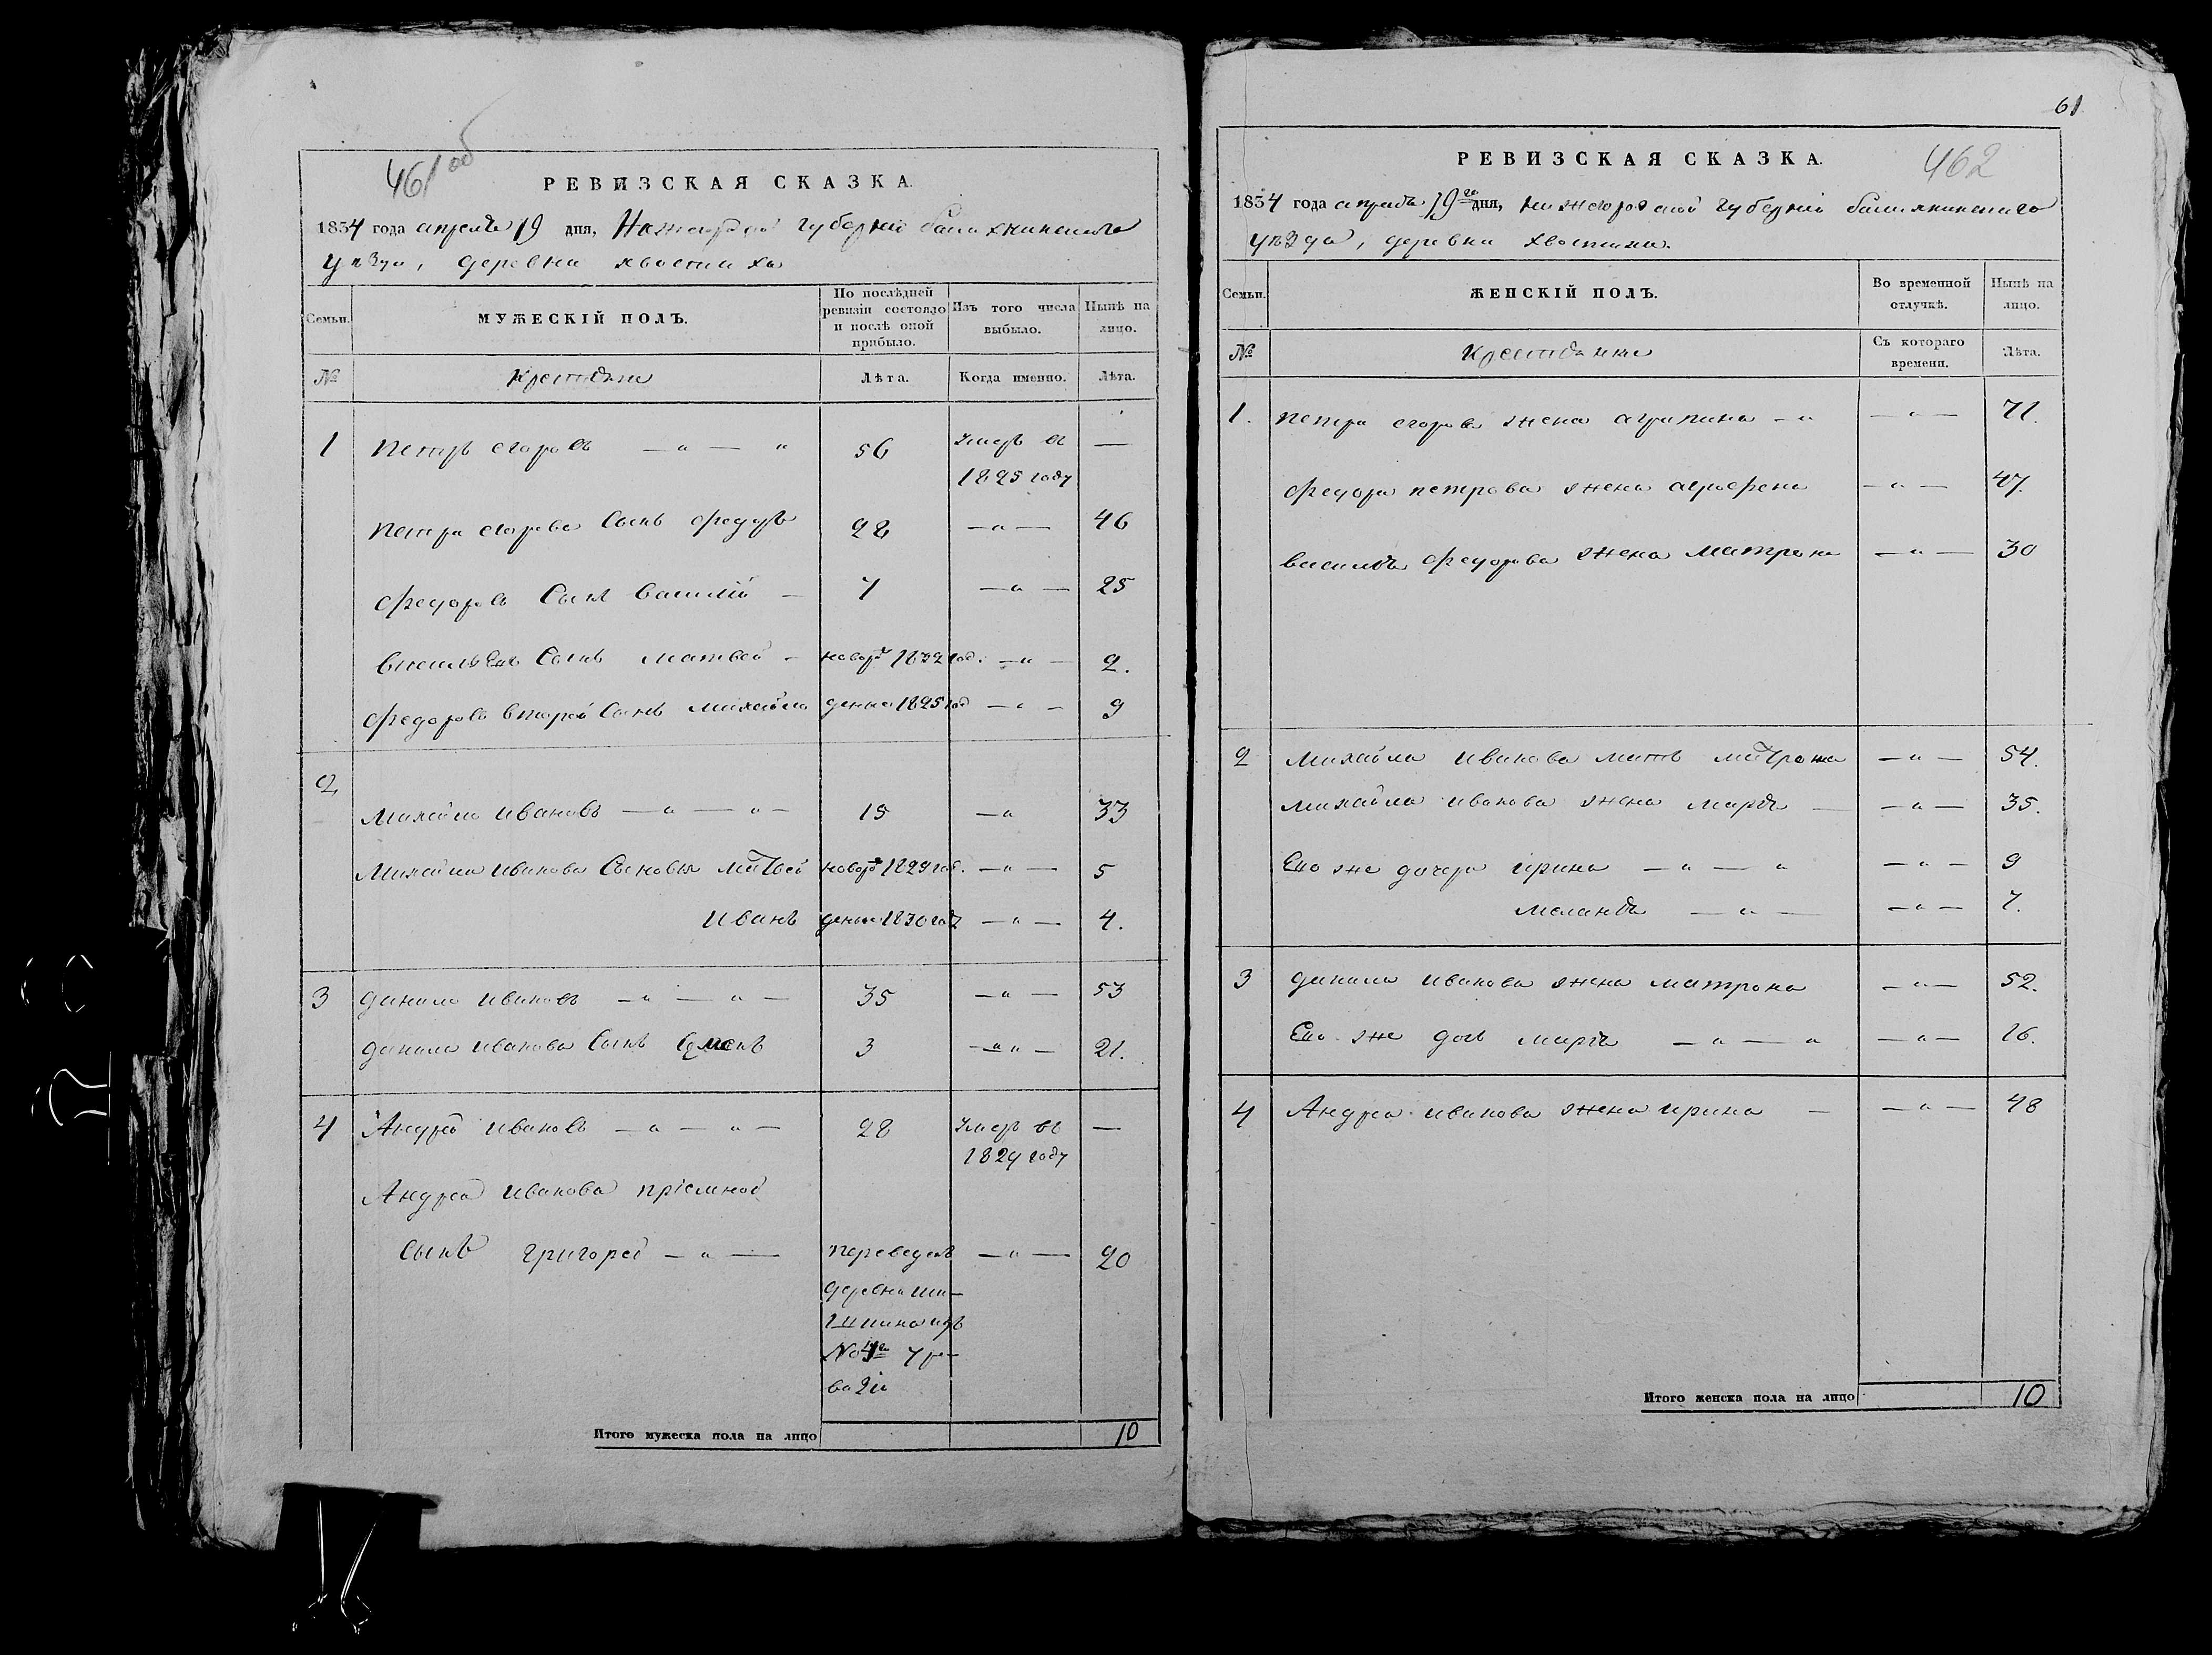 461 об
РЕВИЗСКАЯ СКАЗКА.
1834 года апреля 19 дня, Нижегородской губернии балахнинского
уезда, деревни хвостиха
Семьи. МУЖЕСКІЙ ПОЛЪ. По послѣдней ревизіи состояло и послѣ оной прибыло. Изъ того числа выбыло. Нынѣ на лицо.
№ Крестьяне Лѣта. Когда именно. Лѣта.
1 Петръ егоровъ — „ — „ 56 Умеръ въ —
1825 году
Петра егорова Сынъ федоръ 28 — „ — 46
федоровъ Сынъ василій — 7 — „ — 25
васильевъ Сынъ матвей — новорож 1832 год. — „ — 2.
федоровъ второй Сынъ михайло денъ 1825 год — „ — 9
2
михайло ивановъ — „ — „ — 15 — „ 33
Михайла иванова Сыновья матвей новорож 1829 год. — „ — 5
иванъ денъ 1830 год — „ — 4.
3 данило ивановъ — „ — „ — 35 — „ — 53
данила иванова Сынъ Семенъ 3 — „ — 21.
4 Андрей ивановъ — „ — „ — 28 Умеръ въ —
1829 году
Андрея иванова пріемной
Сынъ григорей — „ — переведенъ — „ — 20
деревни
изъ
№ 4го 7 ре-
визіи
Итого мужеска пола на лицо 10
61
РЕВИЗСКАЯ СКАЗКА.
462
1834 года апреля 19го дня, нижегородской губерніи балахнинскаго
уезда, деревни хвостихи.
Семьи. ЖЕНСКІЙ ПОЛЪ. Во временной отлучкѣ. Нынѣ на лицо.
№ Крестьянки Съ котораго времени. Лѣта.
1. петра егорова жена аграпина — „ — „ — 71.
федора петрова жена аграфена — „ — 47.
василья федорова жена матрона — „ — 30
2 михайла иванова мать матрона — „ — 54.
михайла иванова жена марья — — „ — 35.
Ево же дочери ирина — „ — „ — „ — 9
меланья — „ — — „ — 7.
3 данила иванова жена матрона — „ — 52.
Ево же дочь марья — „ — „ — „ — 16.
4 Андрея иванова жена ирина — — „ — 48
Итого женска пола на лицо 10